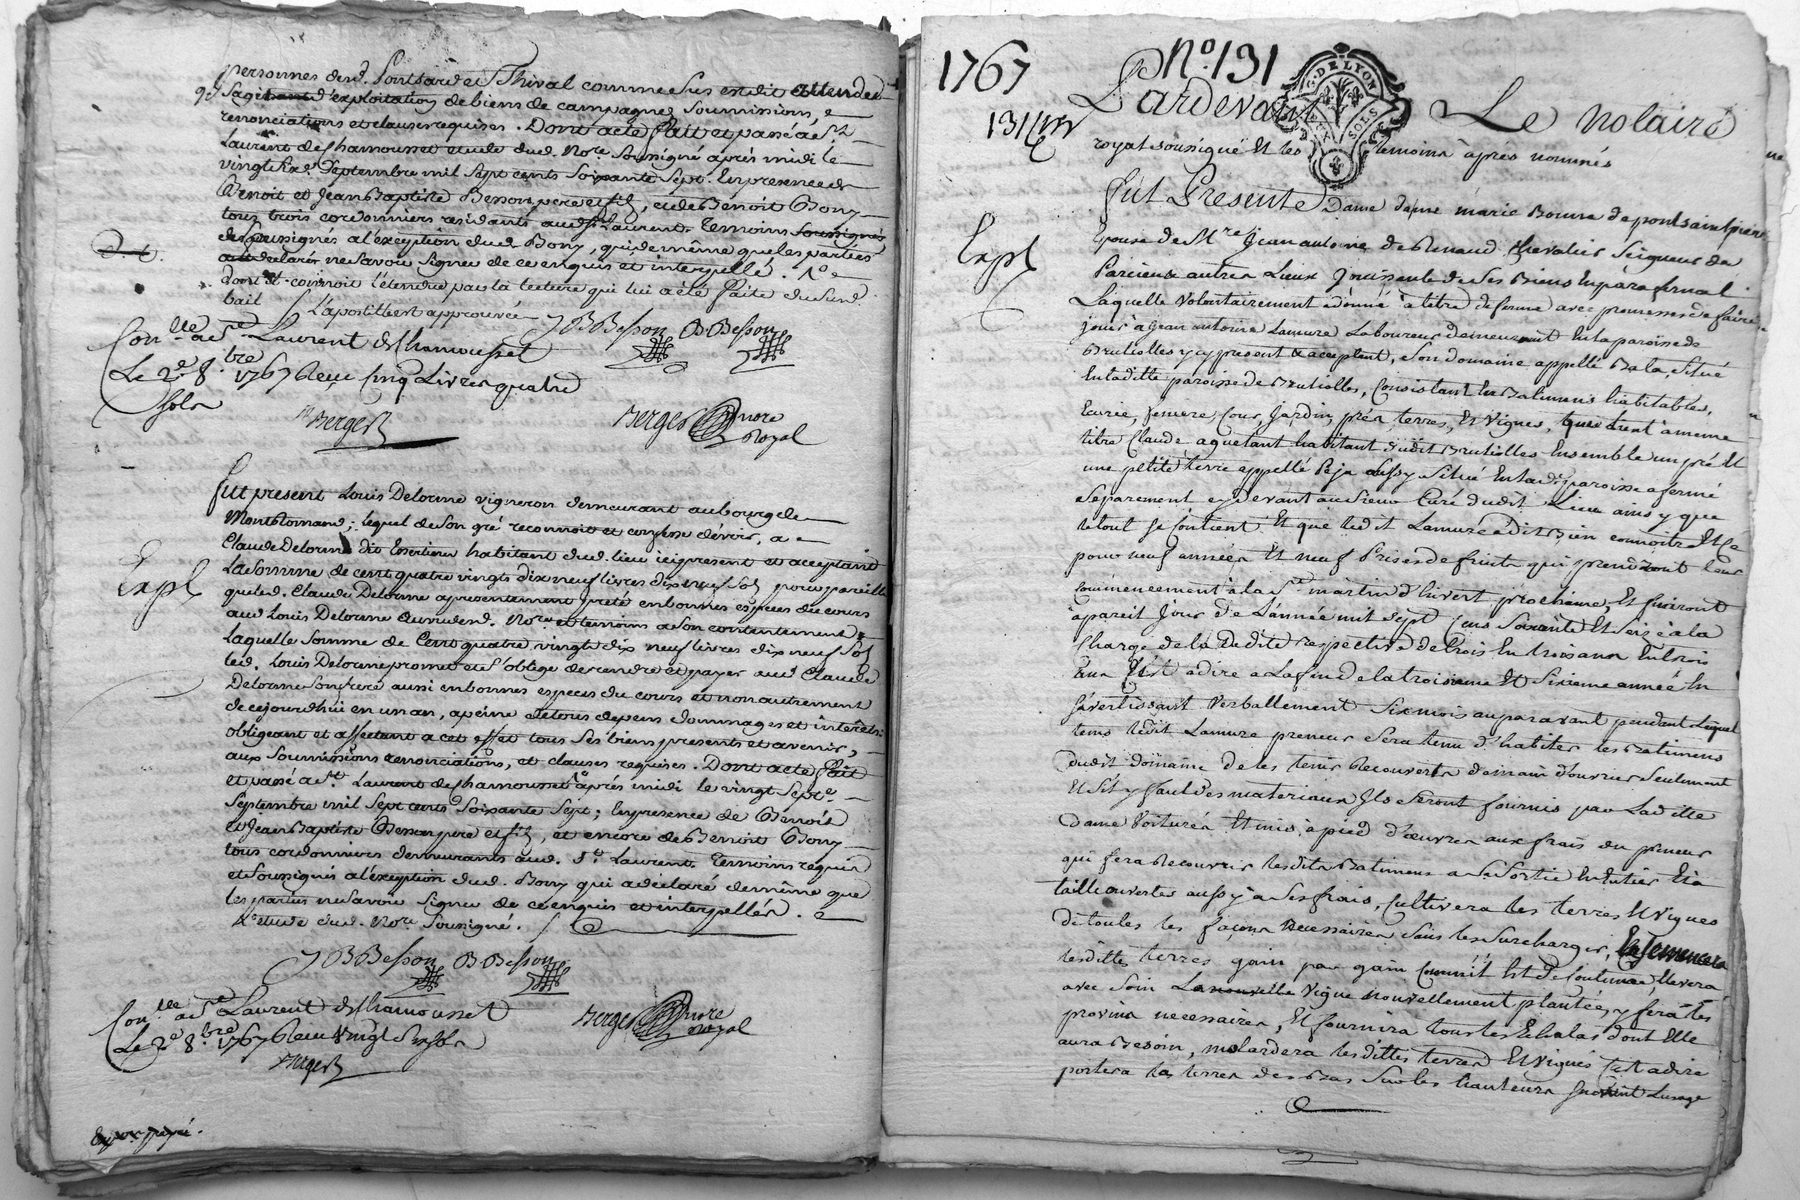 personnes desd. Pontsard et Thival comme sus est dit attendu
qu'il s'agit d'exploitation de biens de campagne, soumissions,
renonciations et clauses requises. Dont acte fait et passé a St
Laurent de Chamousset etude dud. Nore. soussigné après midi le
vingt six Septembre mil sept cents soixante sept. En presence de
Benoit et Jean Baptiste Besson pere et fils, et de Benoit Bony
tous trois cordonniers residants aud. St. Laurent. Temoins soussignés
a l'exception dud. Bony, qui de même que les parties
ont declaré ne savoir signer de ce enquis et interpellé.
dont il connoit l'étendue par la lecture qui lui a été faite du susd.
bail L'apostille est approuvée J B Besson B Besson
Con.lle a St. Laurent de Chamousset
Le 2e 8.bre 1767 Reçu Cinq Livres quatre
Sols
Berger Berger nore
Royal
Fut present Louis Delorme vigneron demeurant au bourg de
Montromand; lequel de son gré reconnoit et confesse devoir, a
Claude Delorme dit habitant dud. lieu ici present et acceptant
La somme de cent quatre vingts dix neuf livres dix neuf sols pour pareille
Expl
que led. Claude Delorme a presentement preté en bonnes especes du cours
aud Louis Delorme au vu dud. Nore. et temoins a son contentement;
Laquelle somme de Cent quatre vingts dix neuf livres dix neuf sols
led. Louis Delorme promet et s'oblige de rendre et payer aud Claude
Delorme son frere aussi en bonnes especes du cours et non autrement
de ce jourd'hui en un an, a peine de tous depens dommages et interêts
obligeant et affectant a cet effet tous ses biens presents et avenir,
aux soumissions renonciations, et clauses requises. Dont acte fait
et passé a St. Laurent de Chamousset après midi le vingt sept
Septembre mil sept cents soixante sept; En presence de Benoit
et Jean Baptiste Besson pere et fils, et encore de Benoit Bony
tous cordonniers demeurants aud. St. Laurent. Temoins requis
et soussignés a l'exception dud. Bony qui a declaré de même que
les parties ne savoir signer de ce enquis et interpellés.
etude dud. Nore. soussigné.
J B Besson B Besson
Con.lle a St Laurent de Chamousset
Le 2e 8.bre 1767 Reçu vingt six sols
Berger Berger nore
Royal
1767 No. 131
131
G. DE LYON
DEUX SOLS
Pardevant Le Notaire
royal soussigné Et les temoins après nommés
Fut Presente Dame marie Bonne de pont saint pierre
Expl
Epouse de Mre. Jean antoine de Renaud Chevalier Seigneur de
Parcieux autres Lieux Jouissante de ses Biens En paraphernal
Laquelle volontairement a donné à titre de ferme avec promesse de faire
jouir à Jean antoine Lamure Laboureur demeurant En la paroisse de
Brutiolles y cy present & acceptant, Son domaine appellé Bala, situé
En la ditte paroisse de Brutiolles, Consistant En Batimens habitables,
Ecurie, feniere, Cour, Jardin, prés terres, Et Vignes, que tient à meme
titre Claude aquetant habitant dudit Brutiolles Ensemble un pré Et
une petite terre appellé Peja aussy situé En la de. paroisse afermé
separement cy devant au sieur Curé dudit Lieu ains y que
le tout se Contient Et que ledit Lamure a dit Bien connoitre Et Ce
pour neuf années Et neuf Prises de fruits qui prendront Leur
Commencement à la St martin d'hivert prochaine, Et finiront
à pareil Jour de L'année mil sept Cens Soixante Et Seize à la
Charge de la dedite respective de trois En trois ans
C'Est a dire a La fin de la troisieme Et Sixieme année En
s'avertissant Verballement Six mois auparavant pendant Lequel
tems Ledit Lamure preneur Sera tenu d'habiter les Batimens
dudit domaine de les tenir Recouverts de main d'ouvrier Seulement
Et s'il y faut des materiaux Ils Seront fournis par La ditte
dame Voiturés Et mis à pied d'œuvre aux frais du preneur
qui fera Recouvrir lesdits Batimens a Sa Sortie En Entier Et à
taille ouverte aussy à Ses frais, Cultivera les terres Et Vignes
de toutes les façons Necessaires Sans les Surcharger, Ensemencera
lesdittes terres gain par gain Comme Est de Coutume, Elevera
avec Soin La nouvelle Vigne nouvellement plantée, y fera les
provins necessaires, Et fournira tous les Echalas dont Elle
aura Besoin, molardera lesdittes terres Et Vignes C'est a dire
portera les terres des Bas Sur les hauteurs Suivant L'usage